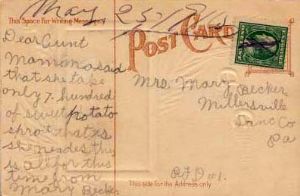 May 25/19
This Space for Writing Messages
POST CARD
Dear Aunt
Mamma said
that she take
only 7. hundred
of sweet potato
sprots that is
she needes this
is all for this
time from
Mary Becker
Mrs. Mary Becker
Millersville
Lanc Co
Pa
RFD #1.
This side for the Address only